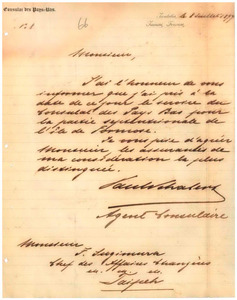 Consulat des Pays-Bas.
66
Monsieur,
J'ai l'honneur de vous
informer que j'ai pris à la
date de ce jour le service du
Consulat des Pays Bas pour
la partie septentrionale de
l'île de Formose.
Je vous prie d'agréer
Monsieur les assurances de
ma considération la plus
distinguée.
Agent Consulaire
Monsieur
Chef des Affaires Etrangères
Taipeh